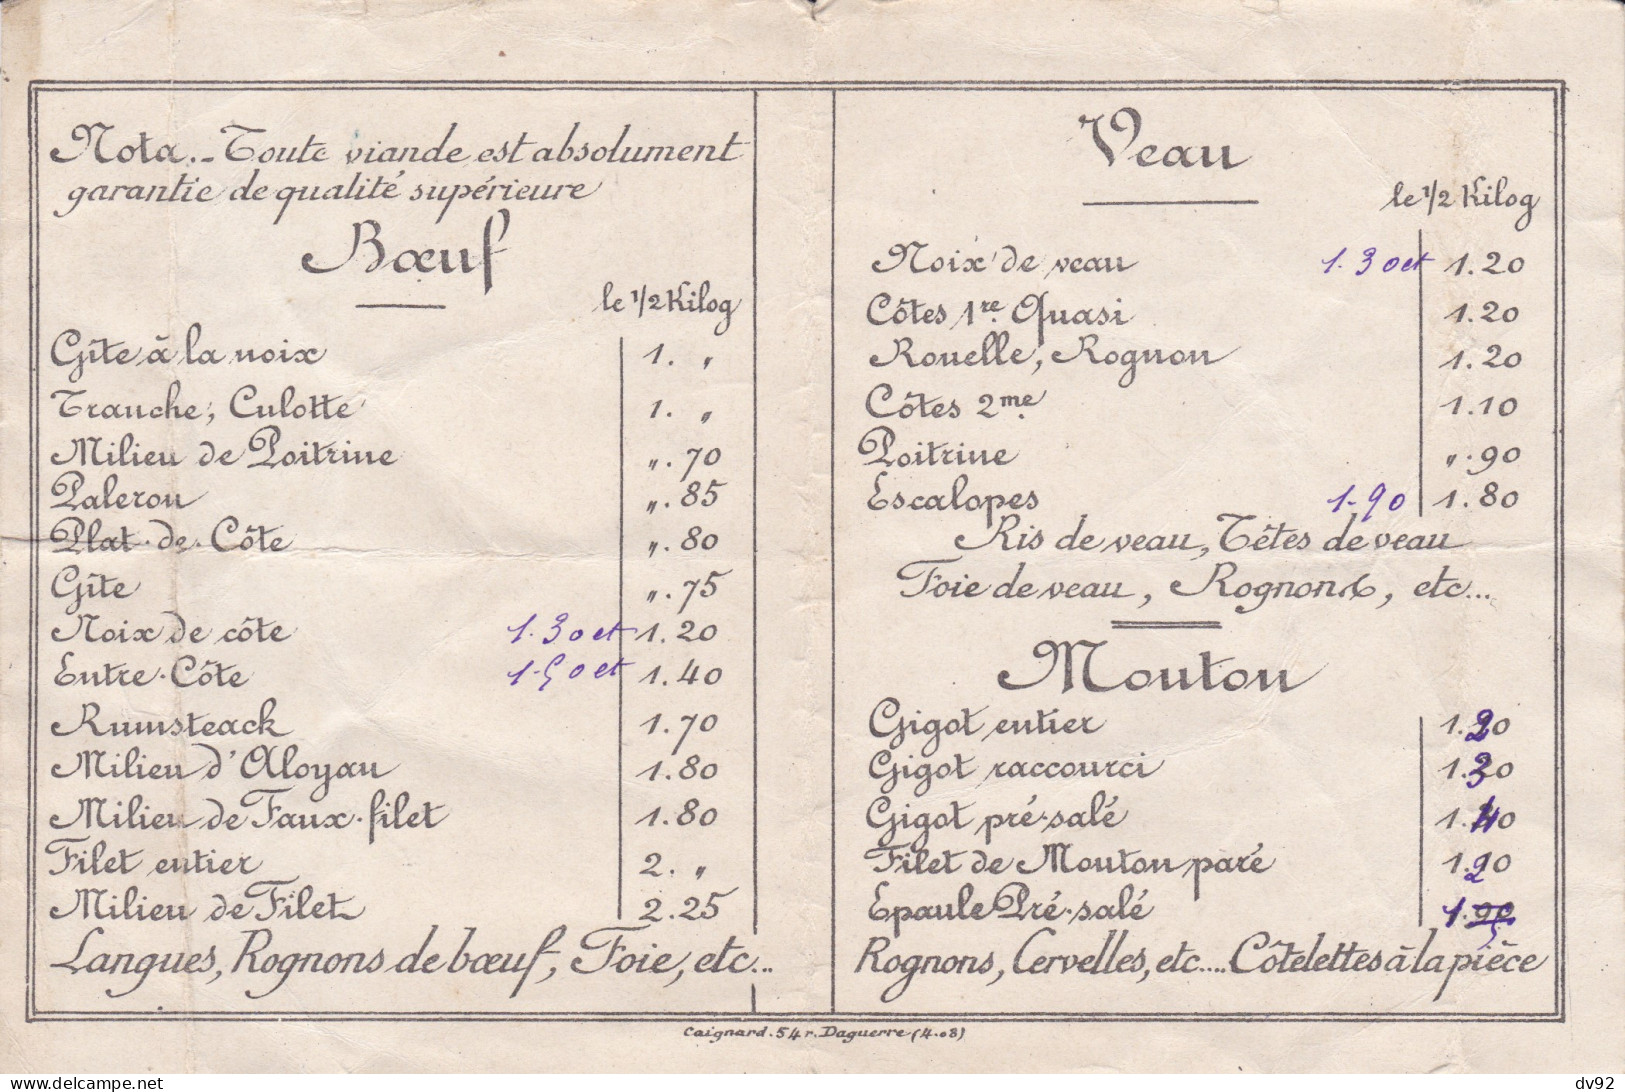 Nota.- Toute viande est absolument
garantie de qualité supérieure
Bœuf
le 1/2 Kilog
Gîte à la noix 1. „
Tranche, Culotte 1. „
Milieu de Poitrine „.70
Paleron „.85
Plat-de-Côte „.80
Gîte „.75
Noix de côte 1.30 et 1.20
Entre-Côte 1.50 et 1.40
Rumsteack 1.70
Milieu d'Aloyau 1.80
Milieu de Faux-filet 1.80
Filet entier 2. „
Milieu de Filet 2.25
Langues, Rognons de bœuf, Foie, etc...
Veau
le 1/2 Kilog
Noix de veau 1.30 et 1.20
Côtes 1re. Quasi 1.20
Rouelle, Rognon 1.20
Côtes 2me. 1.10
Poitrine „.90
Escalopes 1.90 1.80
Ris de veau, Têtes de veau
Foie de veau, Rognons, etc...
Mouton
Gigot entier 1.20
Gigot raccourci 1.30
Gigot pré-salé 1.40
Filet de Mouton paré 1.20
Epaule Pré-salé 1.
Rognons, Cervelles, etc.... Côtelettes à la pièce
Caignard. 54 r. Daguerre (4.08)
delcampe.net
dv92